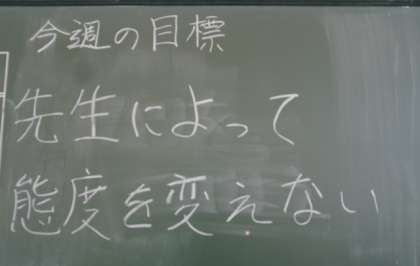 今週の目標
先生によって
態度を変えない